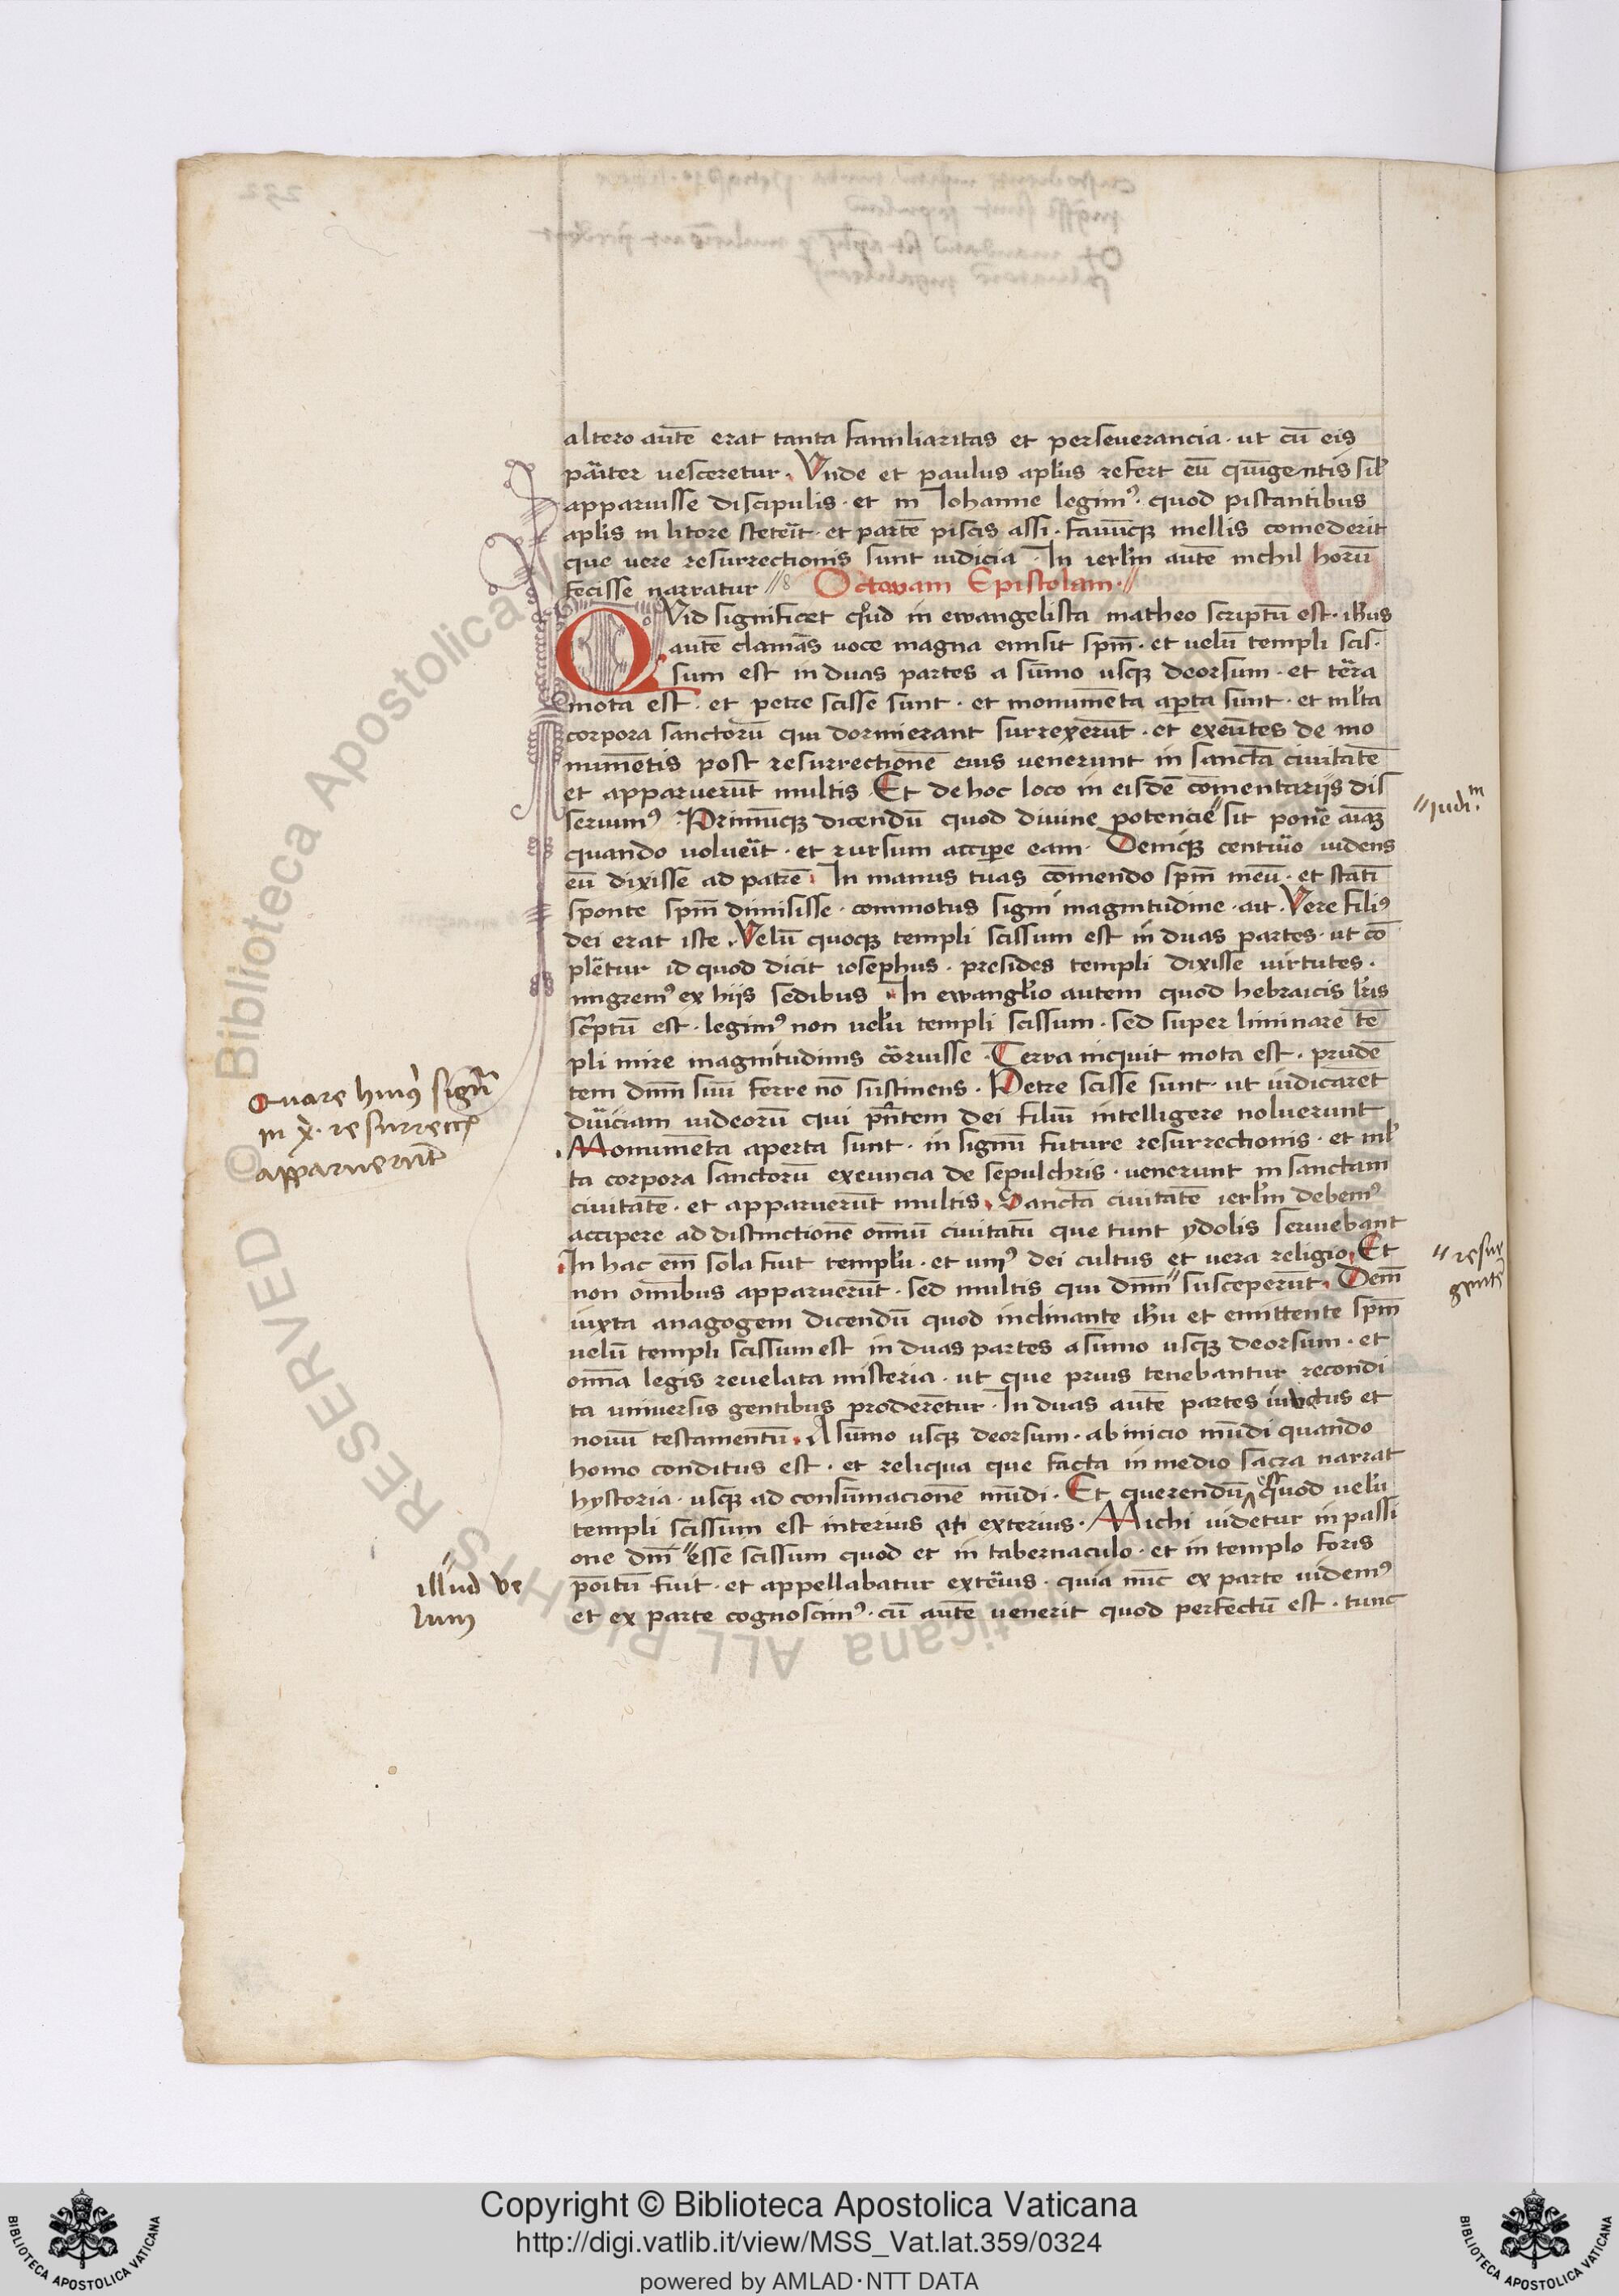 altero autē erat tanta familiaritas et perseverancia · ut cū eis
pariter vesceretur · Vnde et paulus aplus refert eū quīgentis sīl
apparuisse discipulis · et in Iohanne legimꝰ · quod piscantibus
aplis in litore steterit · et partē piscis assi · favūcqꝫ mellis comederit
que vere resurrectionis sunt iudicia · In ierlm autē nichil horū
fecisse narratur // Octavam Epistolam · //
QVid significet qd in ewangelista matheo scriptū est · ihus
autē clamās voce magna emisit spm̄ · et velū templi scis·
sum est in duas partes a sūmo usqꝫ deorsum · et terra
mota est · et petre scisse sunt · et monumēta apta sunt · et mlta
corpora sanctorū qui dormierant surrexerūt · et exeūtes de mo
numētis post resurrectionē eius venerunt in sanctā civitatē
et apparuerūt multis · Et de hoc loco in eisdē cōmentariis dis
seruimꝰ · Primūcqꝫ dicendū quod divine potencie // sit ponē aīaꝫ
quando voluerit · et rursum accipe eam · Deniqꝫ centurio videns
eū dixisse ad patrē · In manus tuas cōmendo spm̄ meū · et statī
sponte spm̄ dimisisse · commotus signi magnitudine · ait · Vere filiꝰ
dei erat iste · Velū quoqꝫ templi scissum est in duas partes · ut cō
plētur id quod dicit iosephus · presides templi dixisse virtutes ·
migremꝰ ex hiis sedibus · In ewanglio autem quod hebraicis lris
scptū est · legimꝰ non velū templi scissum · sed super liminare tē
pli mire magnitudinis corruisse · Terra inquit mota est · pendē
tem dnm̄ suū ferre nō sustinens · Petre scisse sunt · ut iudicarēt
duriciam iudeorū qui pn̄tem dei filiū intelligere noluerunt
Monumēta aperta sunt · in signū future resurrectionis · et ml
ta corpora sanctorū exeuncia de sepulchris · venerunt in sanctam
civitatē · et apparuerūt multis · Sanctā civitatē ierlm debemꝰ
accipere ad distinctionē omniū civitatū que tunc ydolis serviebant
In hac em̄ sola fuit templū · et uniꝰ dei cultus et vera religio · Et
non omībus apparuerūt · sed multis qui dnm̄ // susceperūt · Dem̄
iuxta anagogem dicendū quod inclinante ihu et emittente spm̄
velū templi scissum est in duas partes a sūmo usqꝫ deorsum · et
omīa legis revelata misteria · ut que prius tenebantur recondi
ta universis gentibus proderētur · In duas autē partes in vetus et
novū testamentū · A sūmo usqꝫ deorsum · ab inicio mūdi quando
homo conditus est · et reliqua que facta in medio sacra narrat
hystoria · usqꝫ ad consūmacionē mūdi · Et querendū est quod velū
templi scissum est interius an exterius · Michi videtur in passi
one dnī // esse scissum quod et in tabernaculo · et in templo foris
poitū fuit · et appellabatur exterius · quia nūc ex parte videmꝰ
et ex parte cognoscimꝰ · cū autē venerit quod perfectū est · tunc
// sui · m
Quare huiꝰ signū
in x · resurrecc
apparuerūt
// resur
gentē
// illud ve
lum
Copyright © Biblioteca Apostolica Vaticana
http://digi.vatlib.it/view/MSS_Vat.lat.359/0324
powered by AMLAD·NTT DATA
BIBLIOTECA APOSTOLICA VATICANA
BIBLIOTECA APOSTOLICA VATICANA
© Biblioteca Apostolica Vaticana ALL RIGHTS RESERVED